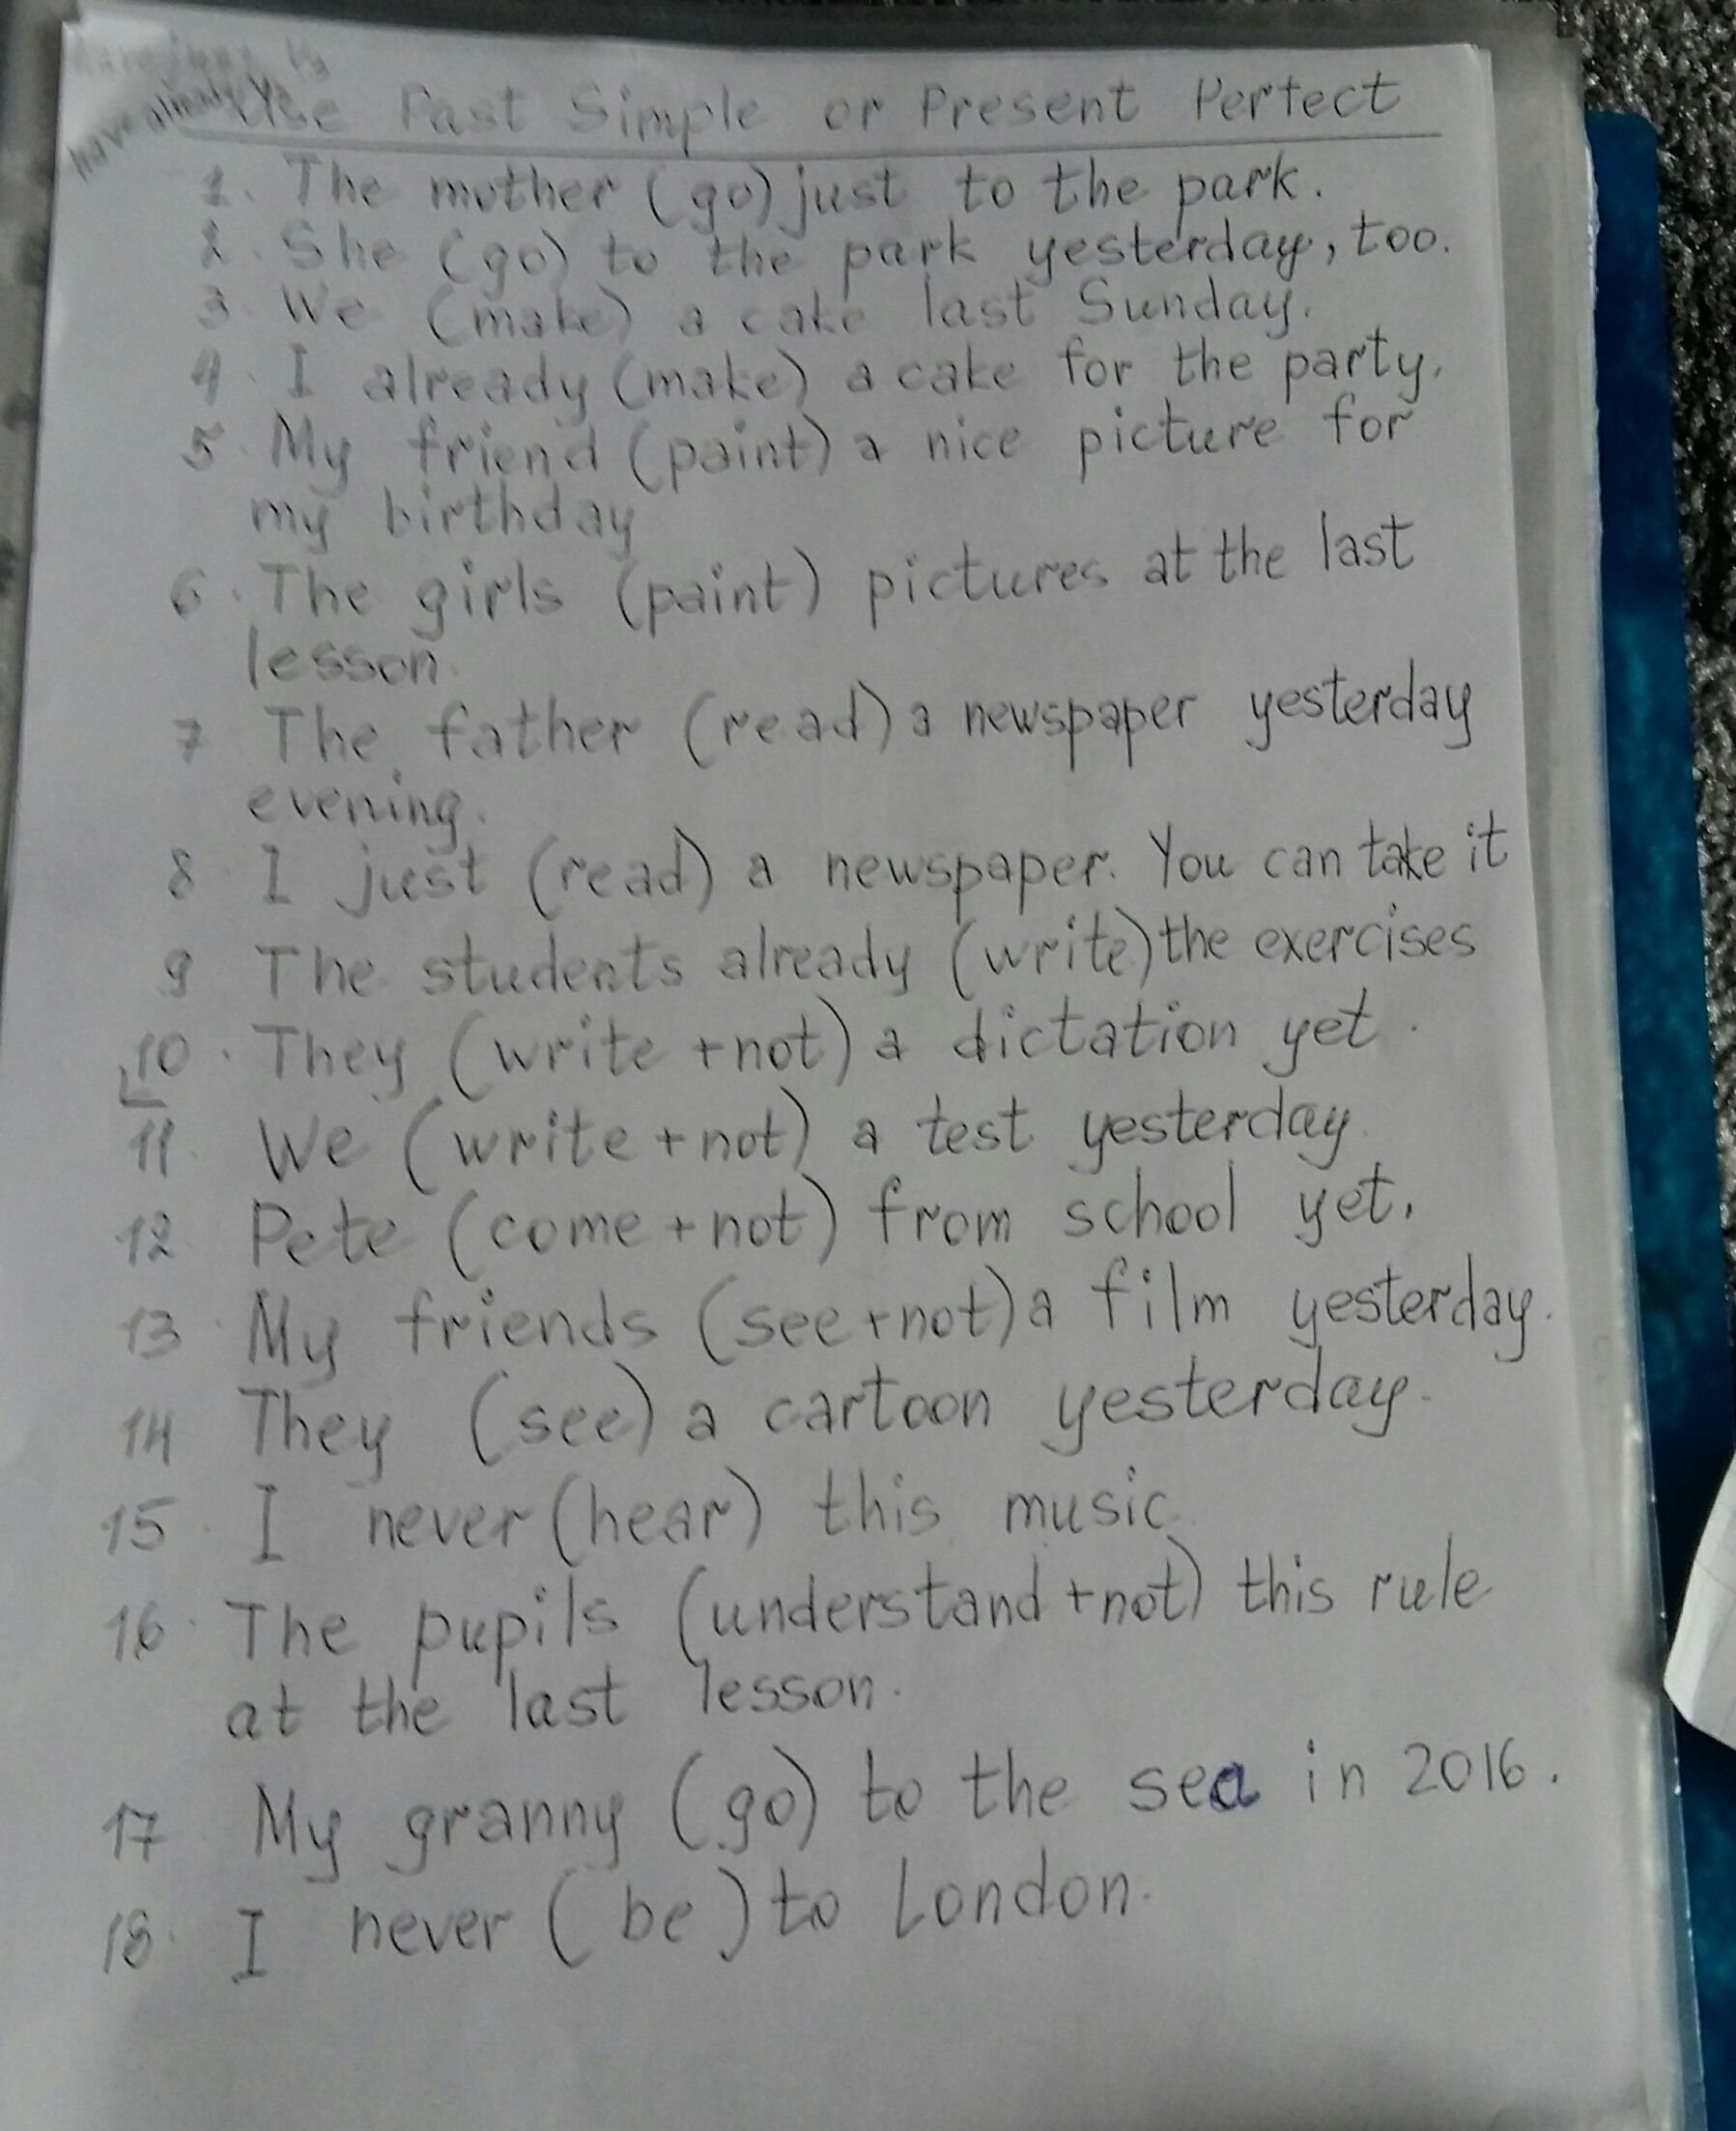 have just V3
have already V3
Use Past Simple or Present Perfect
1. The mother (go) just to the park.
2. She (go) to the park yesterday, too.
3. We (make) a cake last Sunday.
4. I already (make) a cake for the party.
5. My friend (paint) a nice picture for
my birthday
6. The girls (paint) pictures at the last
lesson.
7 The father (read) a newspaper yesterday
evening.
8. I just (read) a newspaper. You can take it
9 The students already (write) the exercises
10. They (write + not) a dictation yet.
11. We (write + not) a test yesterday.
12 Pete (come + not) from school yet.
13. My friends (see + not) a film yesterday.
14 They (see) a cartoon yesterday.
15. I never (hear) this music.
16. The pupils (understand + not) this rule
at the last lesson.
17 My granny (go) to the sea in 2016.
18. I never (be) to London.